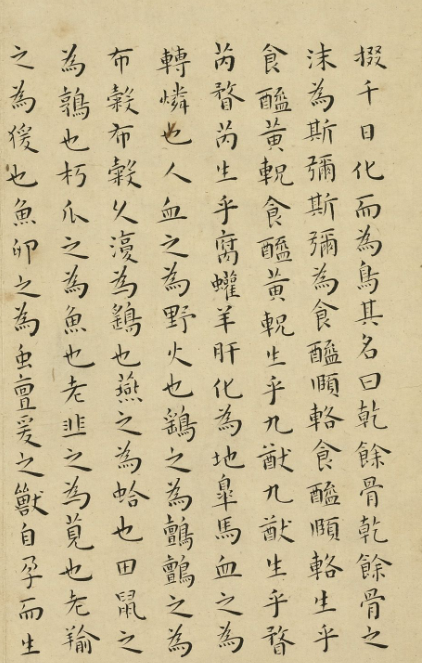 掇千日化而為鳥其名曰乾餘骨乾餘骨之
沫為斯彌斯彌為食醯頤輅食醯頤輅生乎
食醯黃軦食醯黃軦生乎九猷九猷生乎瞀
芮瞀芮生乎腐蠸羊肝化為地臯馬血之為
轉燐也人血之為野火也鷂之為鸇鸇之為
布榖布榖久復為鷂也燕之為蛤也田鼠之
為鶉也朽瓜之為魚也老韭之為莧也老羭
之為猨也魚卵之為虫亶爰之獸自孕而生